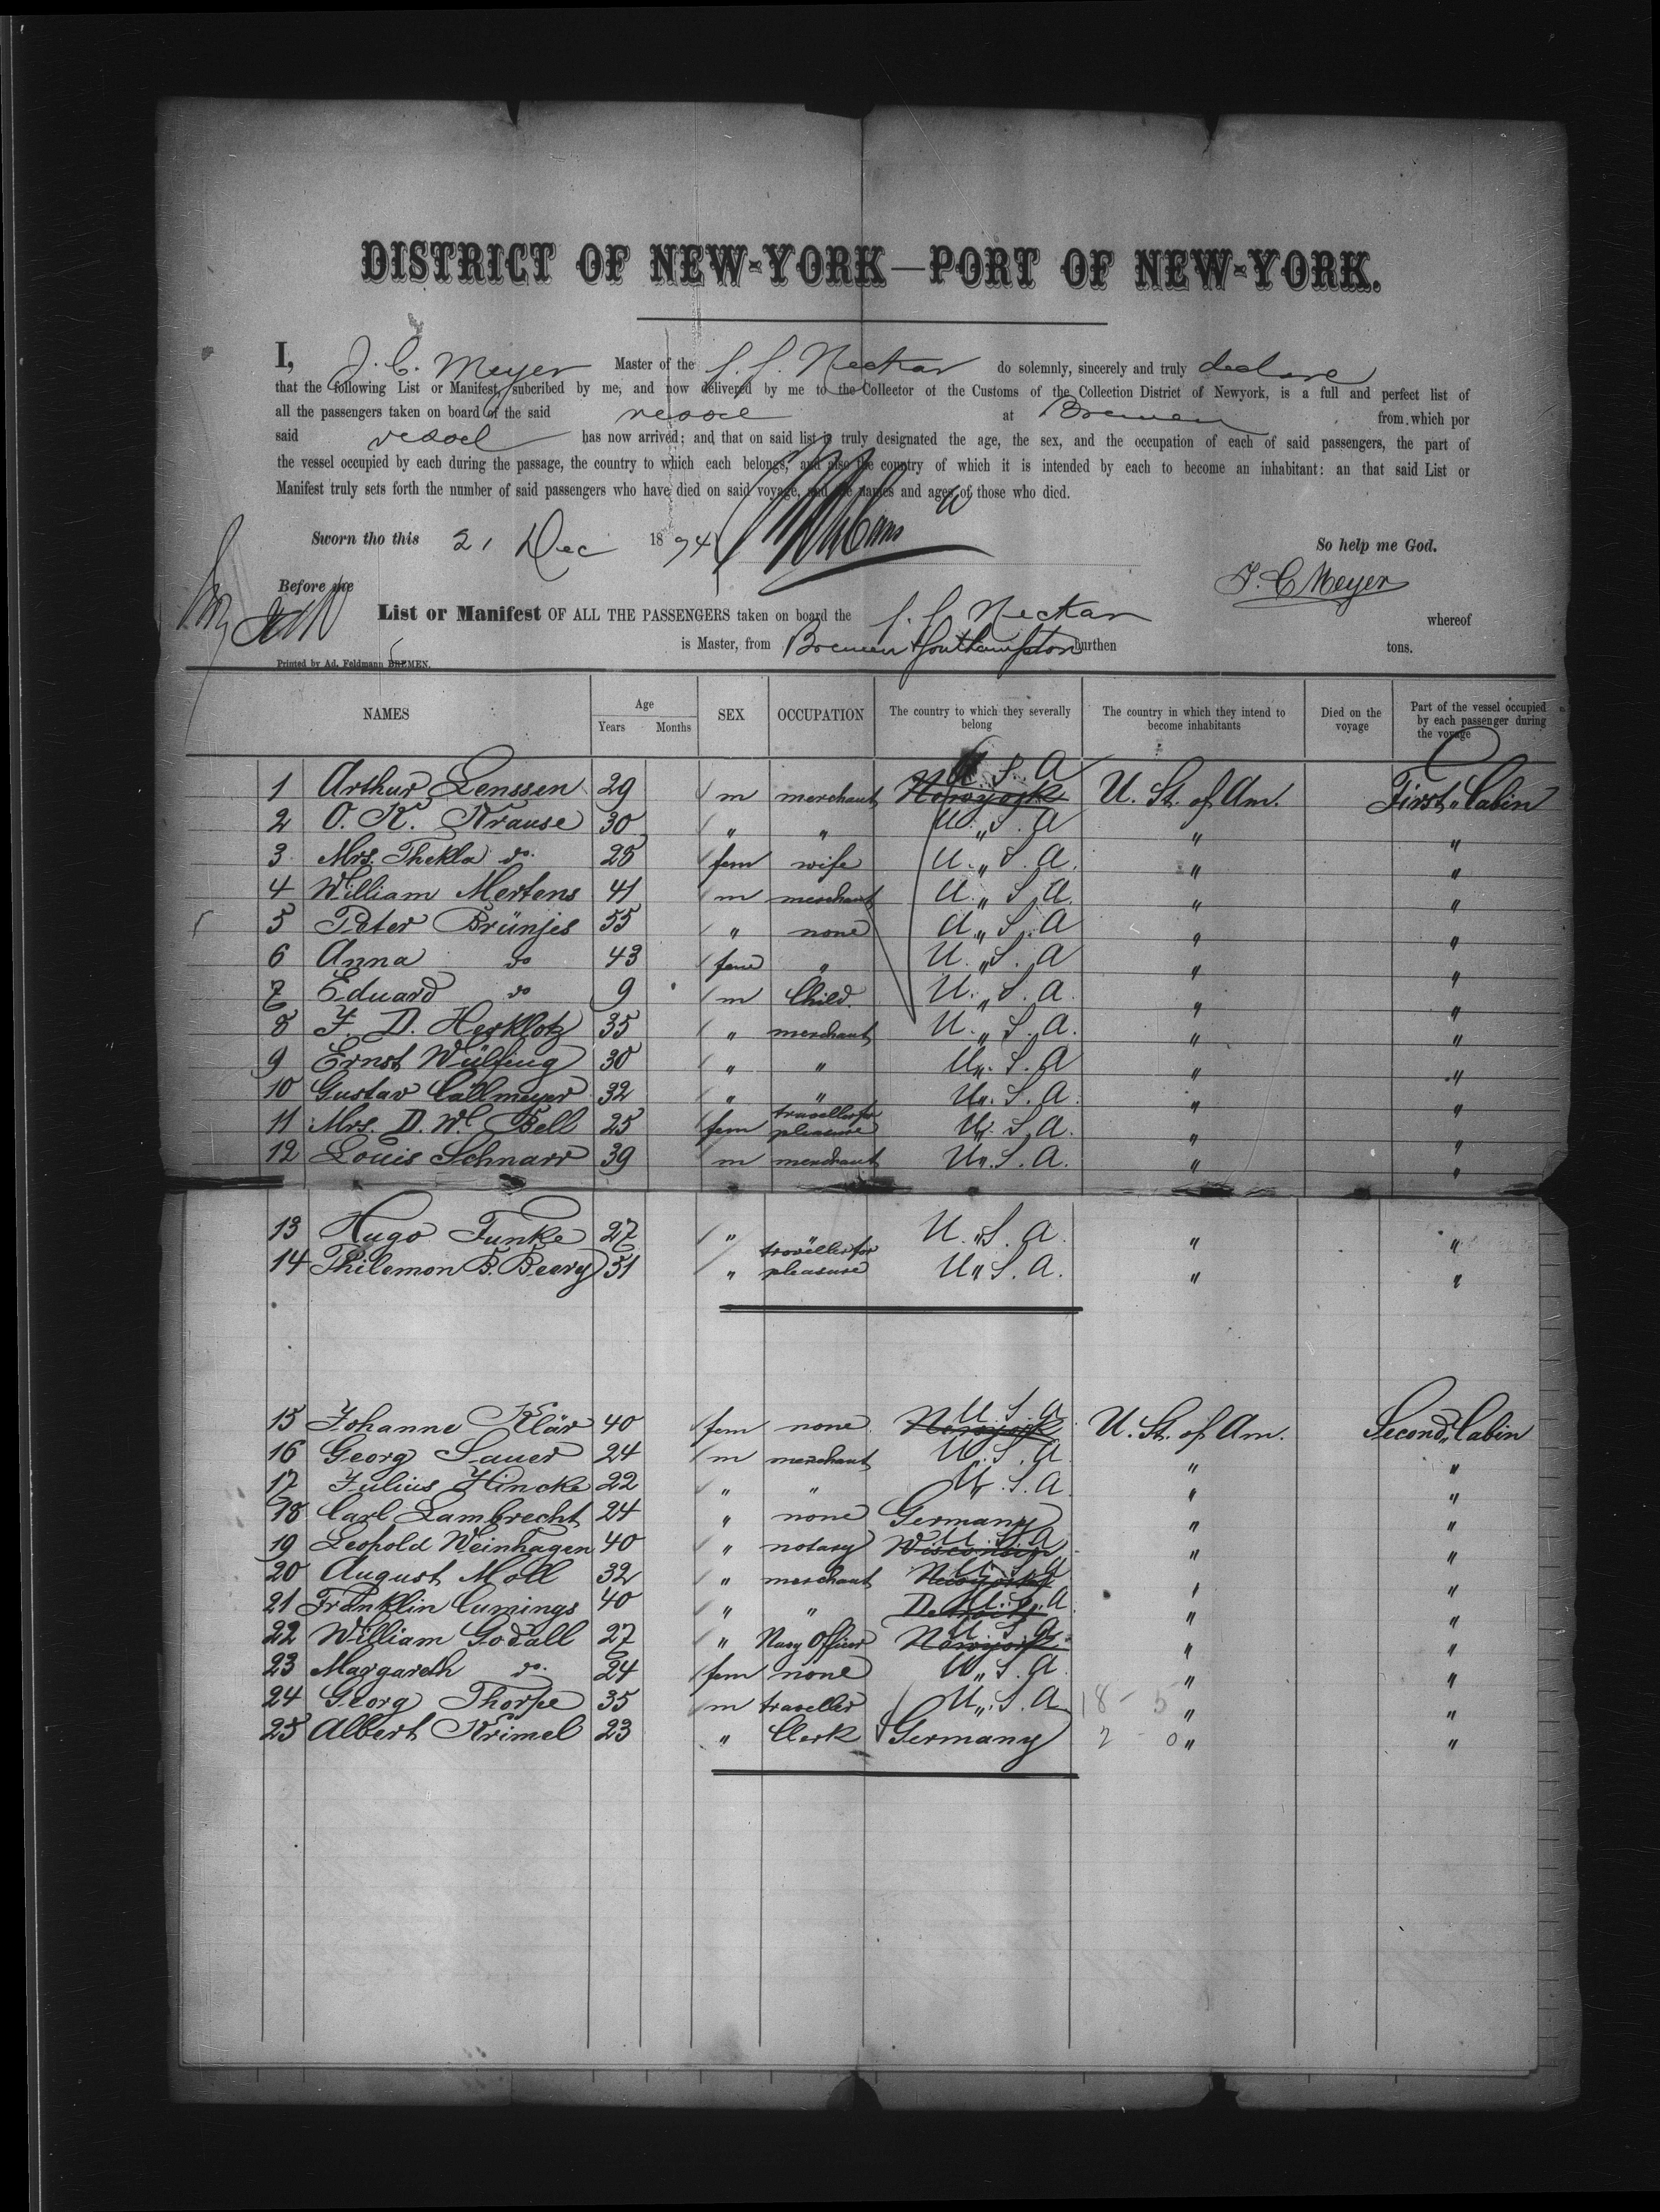 DISTRICT OF NEW-YORK—PORT OF NEW-YORK.
I, J. C. Meyer Master of the S. S. Neckar do solemnly, sincerely and truly declare
that the following List or Manifest, subcribed by me, and now delivered by me to the Collector of the Customs of the Collection District of Newyork, is a full and perfect list of
all the passengers taken on board of the said vessel at Bremen from which por
said vessel has now arrived; and that on said list is truly designated the age, the sex, and the occupation of each of said passengers, the part of
the vessel occupied by each during the passage, the country to which each belongs, and also the country of which it is intended by each to become an inhabitant: an that said List or
Manifest truly sets forth the number of said passengers who have died on said voyage, and the names and ages of those who died.
Sworn tho this 21 Dec 1874 So help me God.
Before me J. C Meyer
List or Manifest OF ALL THE PASSENGERS taken on board the S. S. Neckar whereof
is Master, from Bremen & Southampton burthen tons.
Printed by Ad. Feldmann BREMEN.
NAMES Age Years Months SEX OCCUPATION The country to which they severally belong The country in which they intend to become inhabitants Died on the voyage Part of the vessel occupied by each passenger during the voyage
1 Arthur Lenssen 29 m merchant Newyork U. S. A U. St. of Am. First Cabin
2 O. K. Krause 30 " " U. S. A " "
3 Mrs. Thekla do. 25 fem wife U. S. A. " "
4 William Mertens 41 m merchant U. S. A. " "
5 Peter Brünjes 55 " none U. S. A " "
6 Anna do 43 fem " U. S. A " "
7 Eduard do 9 m Child. U. S. A. " "
8 F. D. Herklotz 35 " merchant U. S. A. " "
9 Ernst Wülfing 30 " " U. S. A " "
10 Gustav Callmeyer 32 " " U. S. A. " "
11 Mrs. D. W. Bell 25 fem traveller for pleasure U. S. A. " "
12 Louis Schnarr 39 m merchant U. S. A. " "
13 Hugo Funke 27 " " U. S. A. " "
14 Philemon B. Beery 31 " traveller for pleasure U. S. A. " "
15 Johanne Klär 40 fem none Newyork U. S. A U. St. of Am. Second Cabin
16 Georg Sauer 24 m merchant U. S. A. " "
17 Julius Hincke 22 " " U. S. A " "
18 Carl Lambrecht 24 " none Germany " "
19 Leopold Weinhagen 40 " notary Wisconsin U. S. A " "
20 August Moll 32 " merchant Newyork U. S. A " "
21 Franklin Cumings 40 " " U. S. A " "
22 William Godall 27 " Navy Officer Newyork U. S. A. " "
23 Margareth do. 24 fem none U. S. A. " "
24 Georg Thorpe 35 m traveller U. S. A 18 - 5 " "
25 Albert Krimel 23 " Clerk Germany 2 - 0 " "